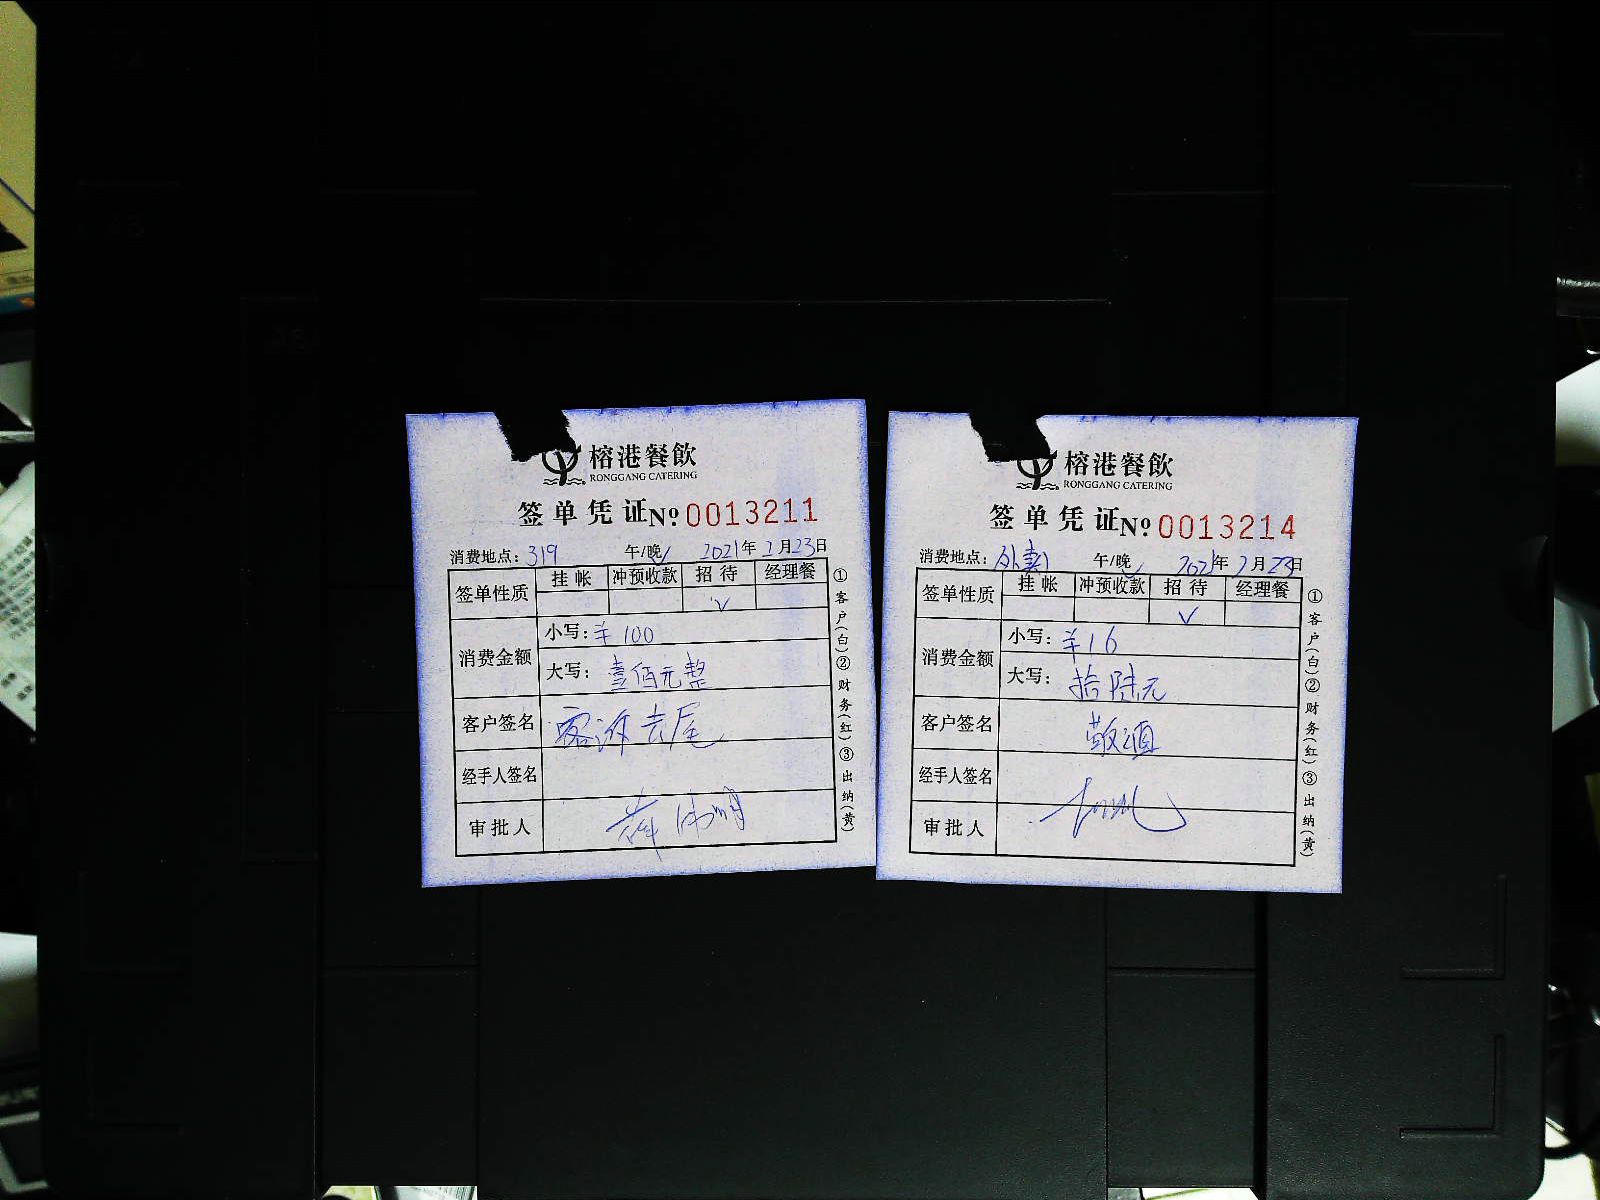 榕港餐飲
RONGGANG CATERING
签单凭证 № 0013211
消费地点：319 午/晚√ 2021年2月23日
签单性质 挂帐 冲预收款 招待 经理餐
√
消费金额 小写：¥100
大写：壹佰元整
客户签名 客诉去尾
经手人签名
审批人
①客户(白)②财务(红)③出纳(黄)
榕港餐飲
RONGGANG CATERING
签单凭证 № 0013214
消费地点：外卖 午/晚√ 2021年2月23日
签单性质 挂帐 冲预收款 招待 经理餐
√
消费金额 小写：¥16
大写：拾陆元
客户签名 敬酒
经手人签名
审批人
①客户(白)②财务(红)③出纳(黄)